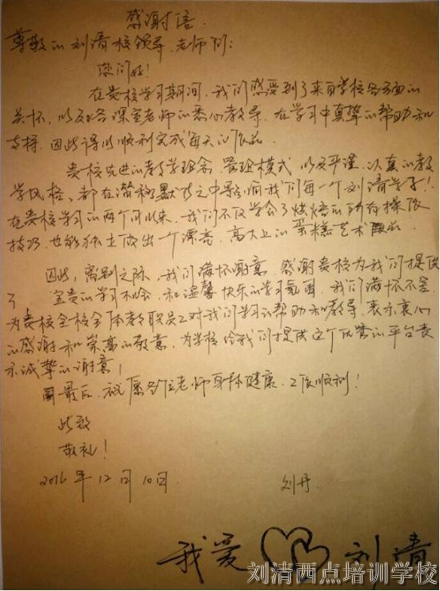 感谢信
尊敬的刘清校领导、老师们：
您们好！
在贵校学习期间，我们感受到了来自学校各方面的
关怀，以及各课室老师的悉心教导，在学习中真挚的帮助和
支持，因此得以顺利完成每天的作品。
贵校先进的教学理念、管理模式，以及严谨、认真的教
学风格，都在潜移默化之中影响我们每一个刘清学子！
在贵校学习的两个月以来，我们不仅学会了烘焙的所有操作
技巧，也能独立做出一个漂亮、高大上的蛋糕艺术作品。
因此，离别之际，我们满怀谢意，感谢贵校为我们提供
了宝贵的学习机会，和温馨快乐的学习氛围，我们满怀不舍
为贵校全校全体教职员工对我们的学习的帮助和教导，表示衷心
的感谢和崇高的敬意，为学校给我们提供这个优秀的平台表
示诚挚的谢意！
最后，祝愿各位老师身体健康，工作顺利！
此致
敬礼！
2016年12月10日 刘丹
我爱 刘清
刘清西点培训学校